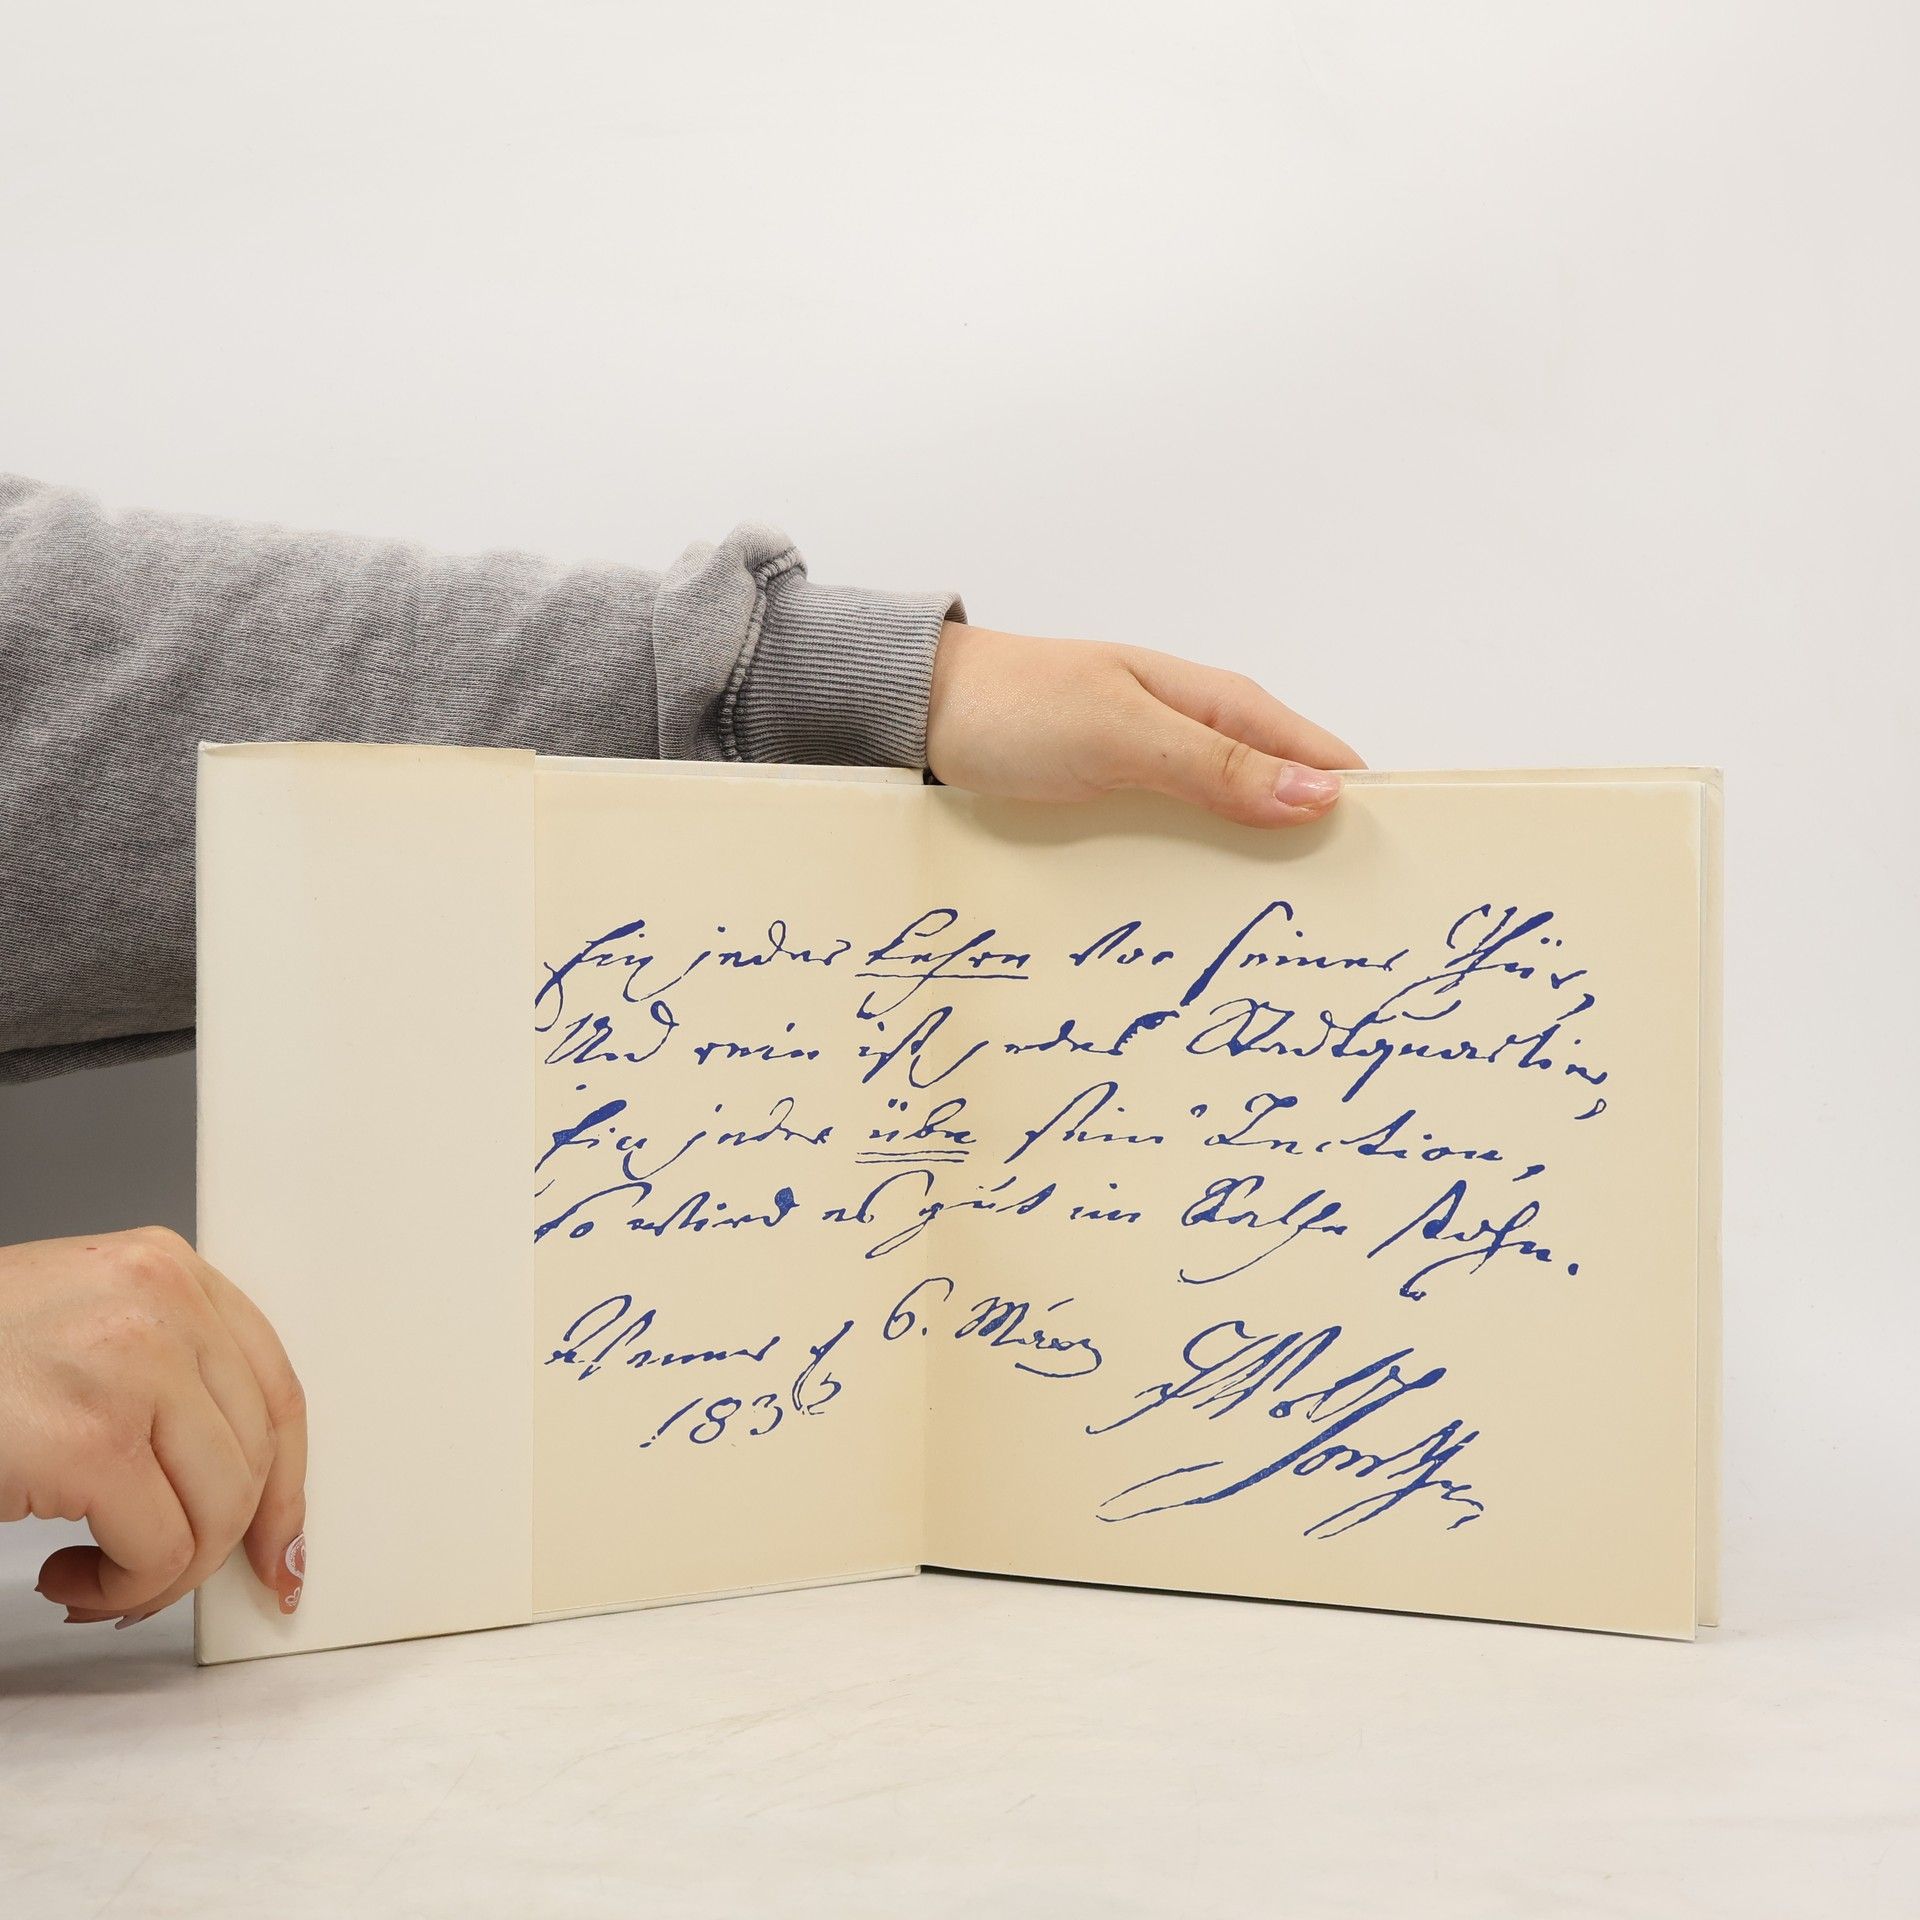 Ein jeder kehre vor seiner Thür,
Und rein ist jedes Stadtquartier,
Ein jeder übe sein' Lection,
So wird es gut im Rathe stohn.
Weimar d 6. März
1832
JWvGoethe